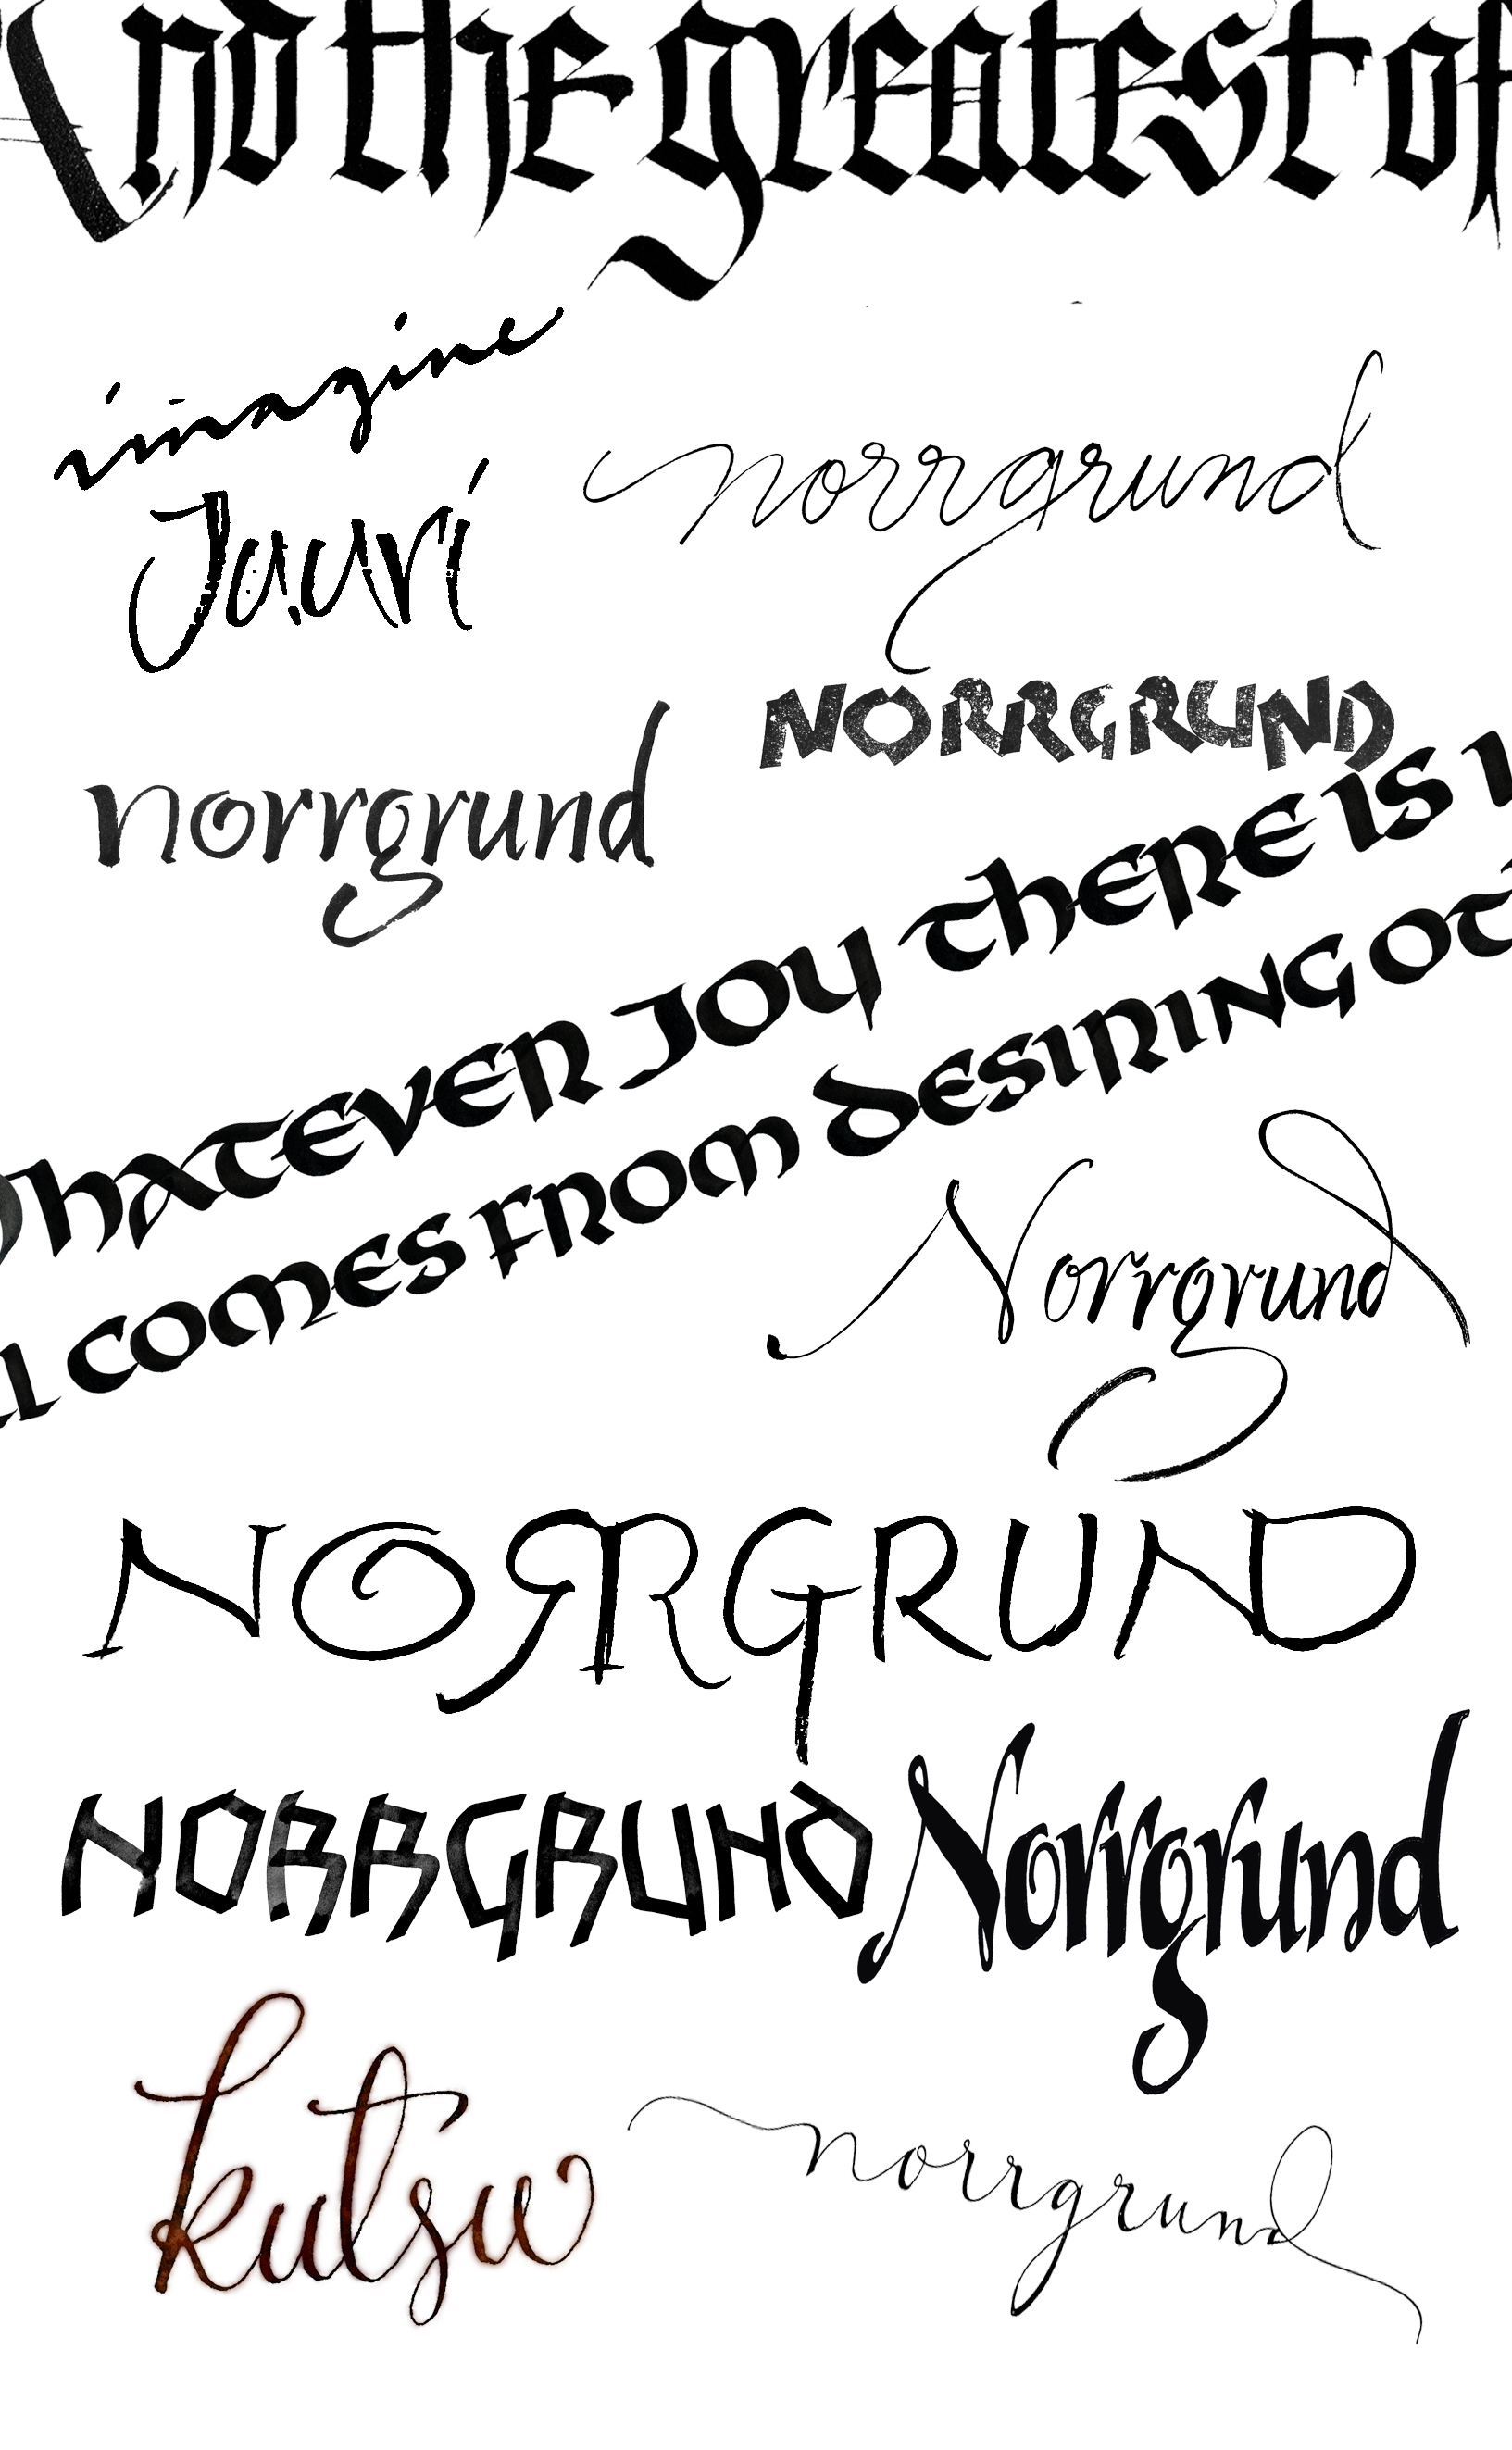 And the greatest of
imagine
norrgrund
Jauri
NORRGRUND
norrgrund
WHATEVER JOY THERE IS
COMES FROM DESIRING
Norrgrund
NORRGRUND
NORRGRUND
Norrgrund
kutsu
norrgrund